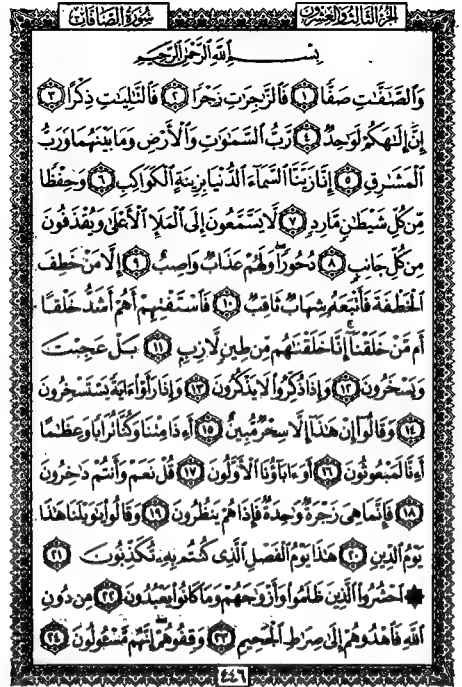 الجزء الثالث والعشرون
سورة الصافات
بِسْمِ اللَّهِ الرَّحْمَٰنِ الرَّحِيمِ
وَالصَّٰٓفَّٰتِ صَفًّا ١ فَالزَّٰجِرَٰتِ زَجْرًا ٢ فَالتَّٰلِيَٰتِ ذِكْرًا ٣
إِنَّ إِلَٰهَكُمْ لَوَٰحِدٌ ٤ رَّبُّ السَّمَٰوَٰتِ وَالْأَرْضِ وَمَا بَيْنَهُمَا وَرَبُّ
الْمَشَٰرِقِ ٥ إِنَّا زَيَّنَّا السَّمَآءَ الدُّنْيَا بِزِينَةٍ الْكَوَاكِبِ ٦ وَحِفْظًا
مِّن كُلِّ شَيْطَٰنٍ مَّارِدٍ ٧ لَّا يَسَّمَّعُونَ إِلَى الْمَلَإِ الْأَعْلَىٰ وَيُقْذَفُونَ
مِن كُلِّ جَانِبٍ ٨ دُحُورًا وَلَهُمْ عَذَابٌ وَاصِبٌ ٩ إِلَّا مَنْ خَطِفَ
الْخَطْفَةَ فَأَتْبَعَهُ شِهَابٌ ثَاقِبٌ ١٠ فَاسْتَفْتِهِمْ أَهُمْ أَشَدُّ خَلْقًا
أَم مَّنْ خَلَقْنَا إِنَّا خَلَقْنَٰهُم مِّن طِينٍ لَّازِبٍ ١١ بَلْ عَجِبْتَ
وَيَسْخَرُونَ ١٢ وَإِذَا ذُكِّرُوا لَا يَذْكُرُونَ ١٣ وَإِذَا رَأَوْا ءَايَةً يَسْتَسْخِرُونَ
١٤ وَقَالُوٓا إِنْ هَٰذَآ إِلَّا سِحْرٌ مُّبِينٌ ١٥ أَءِذَا مِتْنَا وَكُنَّا تُرَابًا وَعِظَٰمًا
أَءِنَّا لَمَبْعُوثُونَ ١٦ أَوَءَابَآؤُنَا الْأَوَّلُونَ ١٧ قُلْ نَعَمْ وَأَنتُمْ دَٰخِرُونَ
١٨ فَإِنَّمَا هِىَ زَجْرَةٌ وَٰحِدَةٌ فَإِذَا هُمْ يَنظُرُونَ ١٩ وَقَالُوا يَٰوَيْلَنَا هَٰذَا
يَوْمُ الدِّينِ ٢٠ هَٰذَا يَوْمُ الْفَصْلِ الَّذِى كُنتُم بِهِۦ تُكَذِّبُونَ ٢١
۞ احْشُرُوا الَّذِينَ ظَلَمُوا وَأَزْوَٰجَهُمْ وَمَا كَانُوا يَعْبُدُونَ ٢٢ مِن دُونِ
اللَّهِ فَاهْدُوهُمْ إِلَىٰ صِرَٰطِ الْجَحِيمِ ٢٣ وَقِفُوهُمْ إِنَّهُم مَّسْـُٔولُونَ ٢٤
٤٤٦